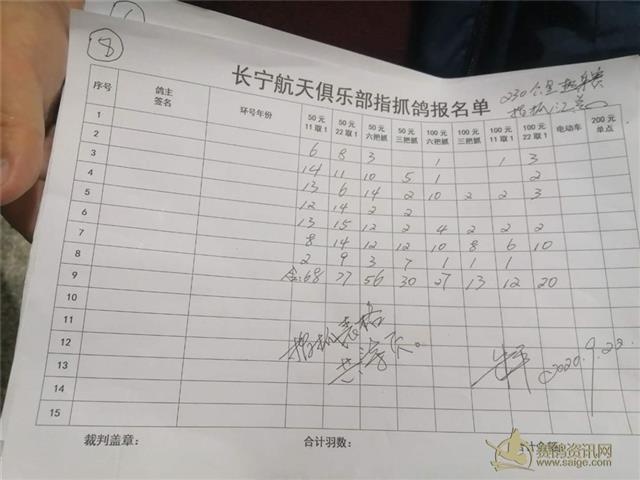 8
长宁航天俱乐部指抓鸽报名单
230公里
指抓汇总
序号 鸽主签名 环号年份 50元11取1 50元22取1 50元六把抓 50元三把抓 100元六把抓 100元三把抓 100元11取1 100元22取1 电动车 200元单点
1
2
3 6 8 3 1 1 3
4 14 11 10 5 1 2
5 13 6 14 2 10 2 2 3
6 12 14 2 2
7 13 15 12 2 4 2 2 2
8 8 14 12 12 10 8 6 10
9 2 9 3 7 1 1 1
合:68 77 56 30 27 13 12 20
10
11
12 指抓表格
13 共 张。
14 2020.9.28.
15
裁判盖章: 合计羽数: 合计金额:
赛鸽资讯网
www.saige.com